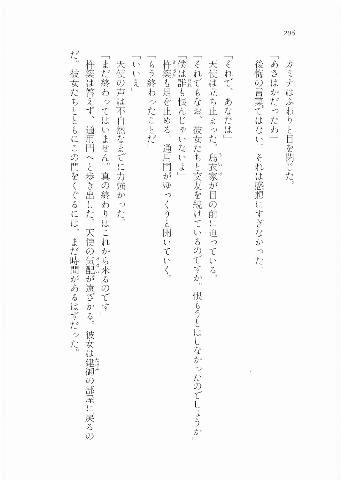 296
カミナはふわりと目を閉じた。
「あさはかだったわ」
後悔の言葉ではない、それは感想にすぎなかった。
「それで、あなたは」
天使は立ち止まった。鳥衣家が目の前に迫っている。
「それでもなお、彼女たちと交友を続けているのですか。恨もうとはしなかったのでしょうか」
「僕は誰も恨んじゃいないよ」
杵築も足を止める。通用門がゆっくりと開いていく。
「もう終わったことだ」
「いいえ」
天使の声は不自然なまでに力強かった。
「まだ終わってはいません。真の終わりはこれから来るのです」
杵築は答えず、通用門へと歩き出した。天使の気配が遠ざかる。彼女は建御の部屋に戻るの
だ。彼女たちとともにこの門をくぐるには、まだ時間があるはずだった。